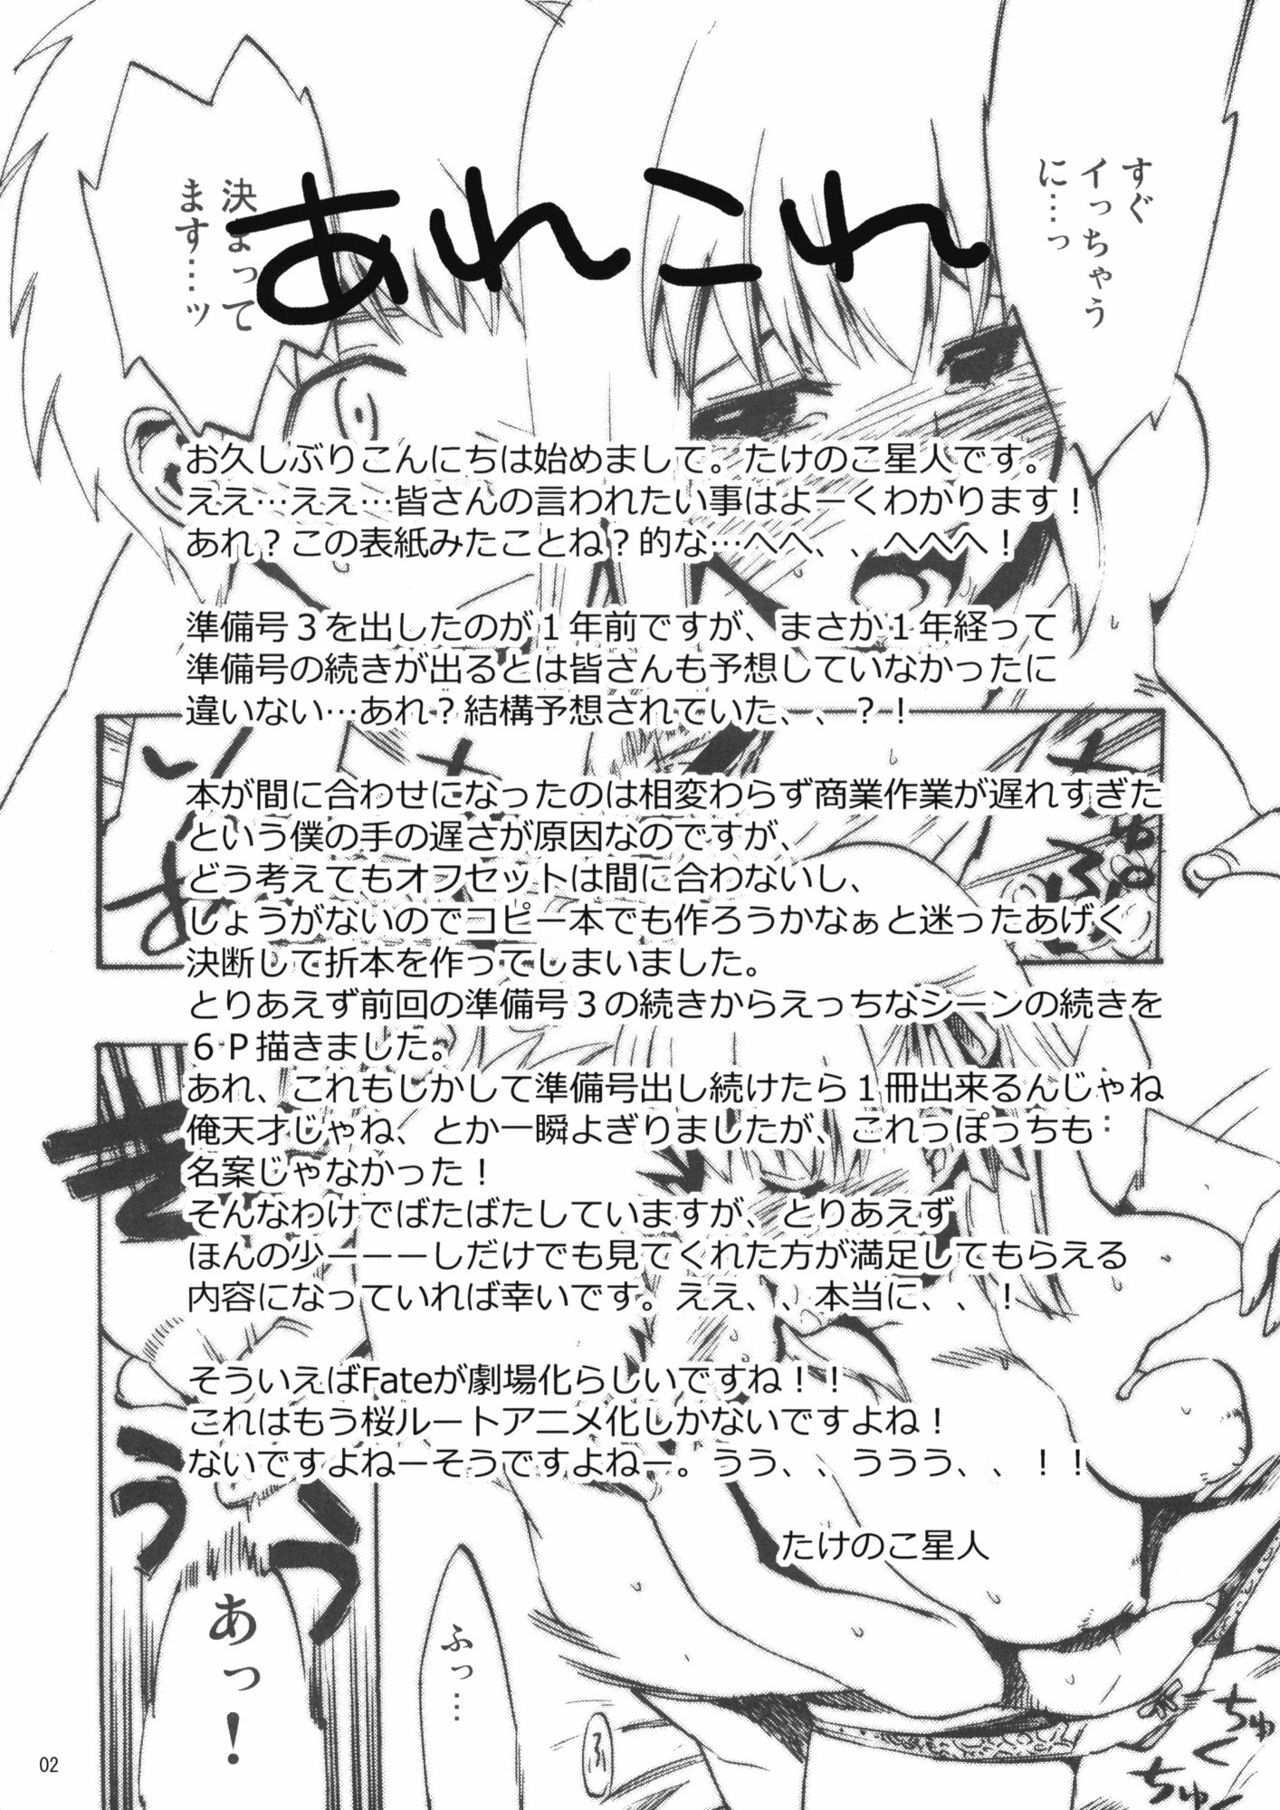 あれこれ
すぐ
イっちゃう
に…っ
決まって
ます…ッ
お久しぶりこんにちは始めまして。たけのこ星人です。
ええ…ええ…皆さんの言われたい事はよーくわかります！
あれ？この表紙みたことね？的な…へへ、、へへへ！
準備号３を出したのが１年前ですが、まさか１年経って
準備号の続きが出るとは皆さんも予想していなかったに
違いない…あれ？結構予想されていた、、？！
本が間に合わせになったのは相変わらず商業作業が遅れすぎた
という僕の手の遅さが原因なのですが、
どう考えてもオフセットは間に合わないし、
しょうがないのでコピー本でも作ろうかなぁと迷ったあげく
決断して折本を作ってしまいました。
とりあえず前回の準備号３の続きからえっちなシーンの続きを
６Ｐ描きました。
あれ、これもしかして準備号出し続けたら１冊出来るんじゃね
俺天才じゃね、とか一瞬よぎりましたが、これっぽっちも
名案じゃなかった！
そんなわけでばたばたしていますが、とりあえず
ほんの少ーーーしだけでも見てくれた方が満足してもらえる
内容になっていれば幸いです。ええ、、本当に、、！
そういえばFateが劇場化らしいですね！！
これはもう桜ルートアニメ化しかないですよね！
ないですよねーそうですよねー。うう、、ううう、、！！
たけのこ星人
うう
あっ！
ふっ…
ちゅく
ちゅ
02